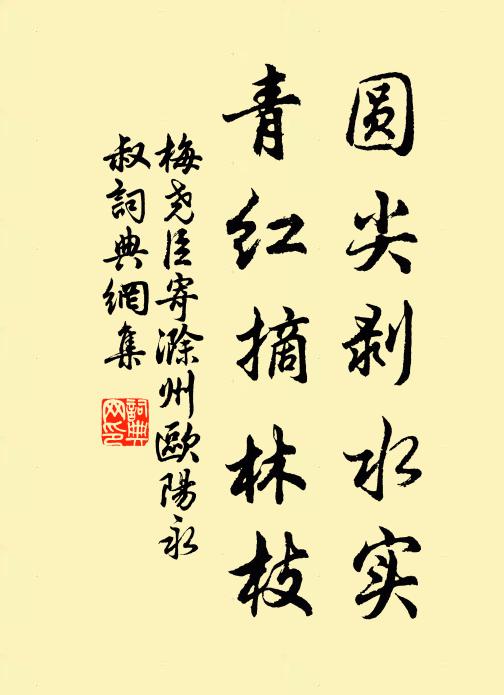 圆尖剥水实
青红摘林枝
梅尧臣寄滁州歐陽永
叔詞典網集
詞典
网印